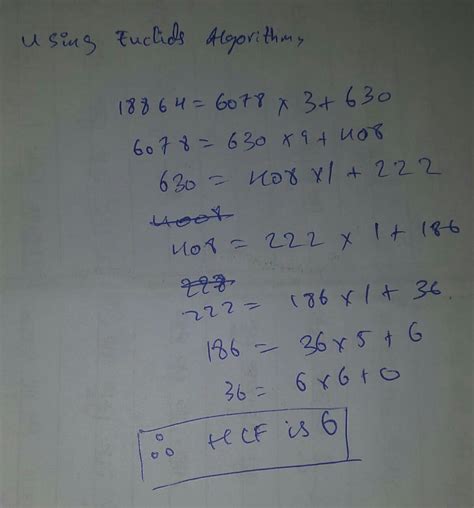 Using Euclids Algorithm,
18864 = 6078 × 3 + 630
6078 = 630 × 9 + 408
630 = 408 × 1 + 222
4008
408 = 222 × 1 + 186
228
222 = 186 × 1 + 36.
186 = 36 × 5 + 6
36 = 6 × 6 + 0
∴ HCF is 6